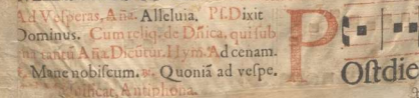 Ad Vesperas, Aña. Alleluia. Ps. Dixit
Dominus. Cum reliq. de Dñica, qui sub
una tantũ Aña. Dicũtur. Hym. Ad cenam.
℣. Mane nobiscum. ℟. Quoniã ad vespe.
Antiphona.
P
Ostdie